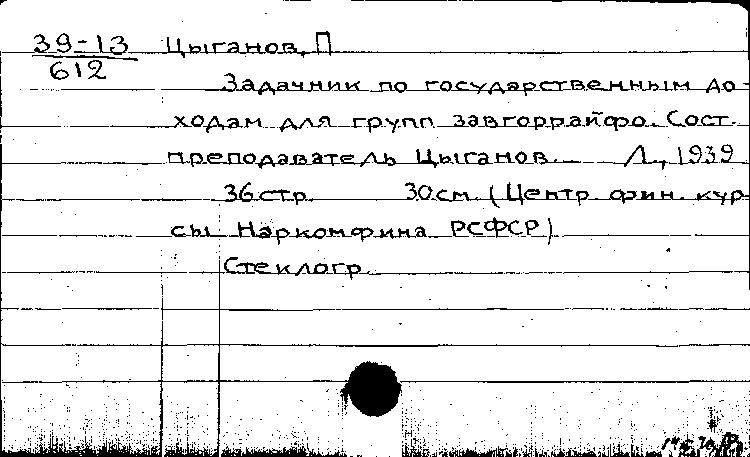 39-13 Цыганов, П
612
Задачник по государственным до-
ходам для групп завгоррайфо. Сост.
преподаватель Цыганов. Л., 1939
36 стр. 30 см. (Центр. фин. кур-
сы Наркомфина РСФСР)
Стеклогр.